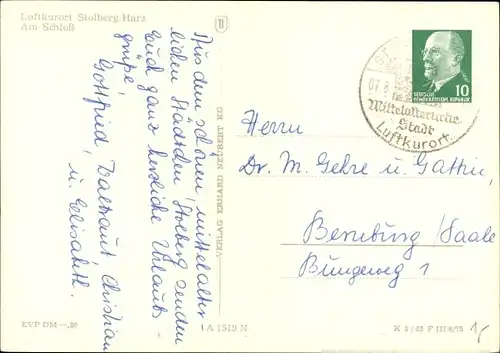 Luftkurort Stolberg/Harz
Am Schloß
Aus dem schönen mittelalter
lichen Städtchen Stolberg senden
Euch ganz herzliche Urlaubs-
grüße,
Gottfried, Waltraut, Christian
u. Elisabeth.
EVP DM —,20
VERLAG ERHARD NEUBERT KG
1 A 1519 N
07.8.
Mittelalterliche
Stadt
Luftkurort
10
DEUTSCHE
DEMOKRATISCHE REPUBLIK
Herrn
Dr. M. Gehre und Gattin,
Bernburg/Saale
Bungeweg 1